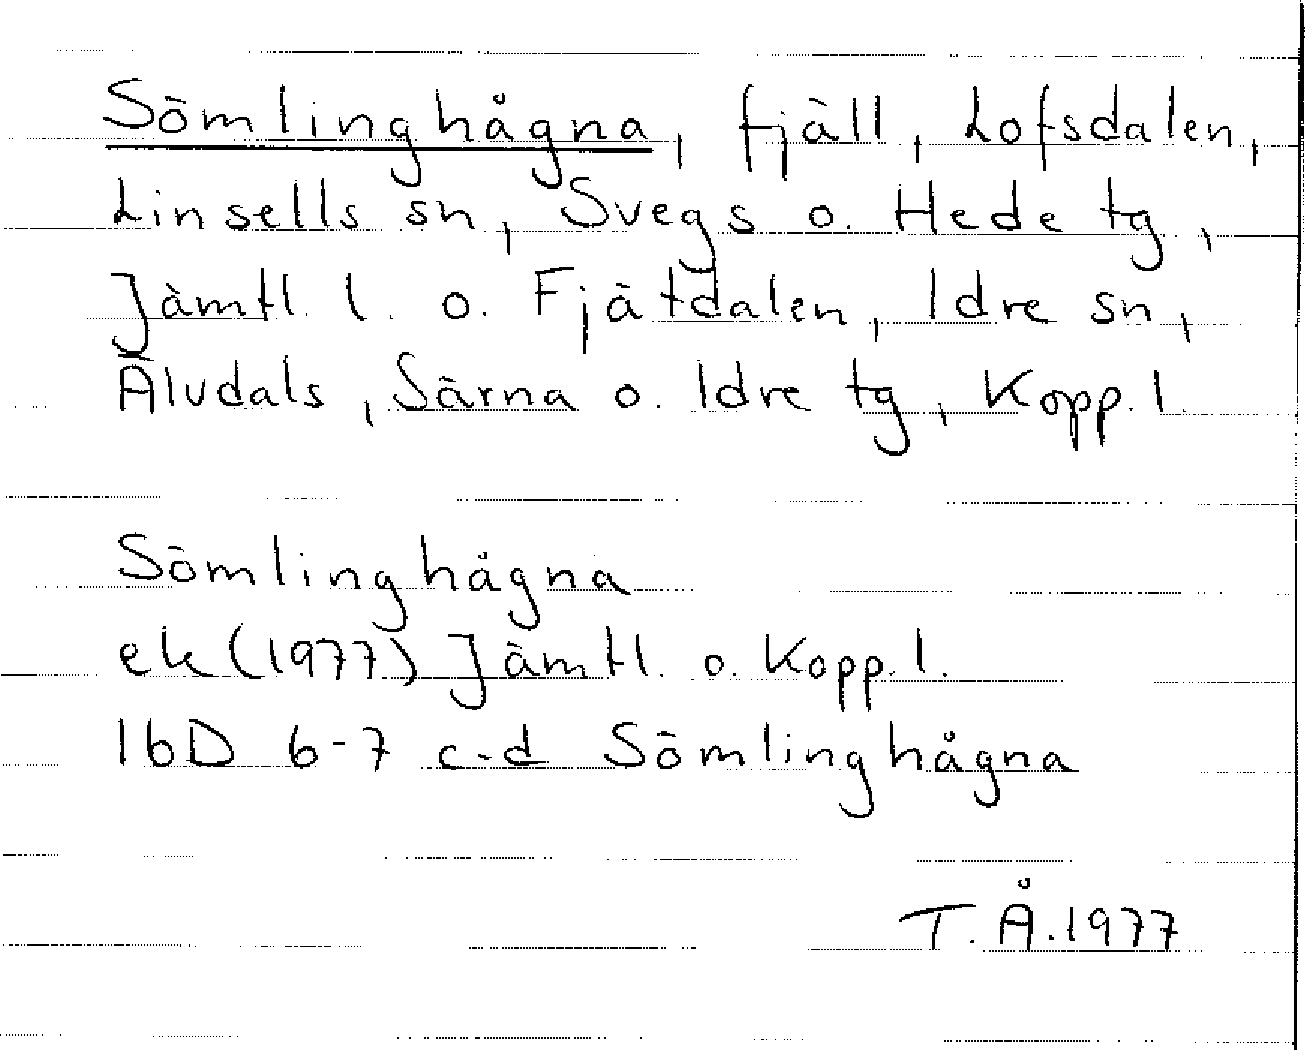 Sömlinghågna, fjäll, Lofsdalen,
Linsells sn, Svegs o. Hede tg,
Jämtl. l. o. Fjätdalen, Idre sn,
Älvdals, Särna o. Idre tg, Kopp. l.
Sömlinghågna
ek (1977) Jämtl. o. Kopp. l.
16D 6-7 c-d Sömlinghågna
T.Å. 1977